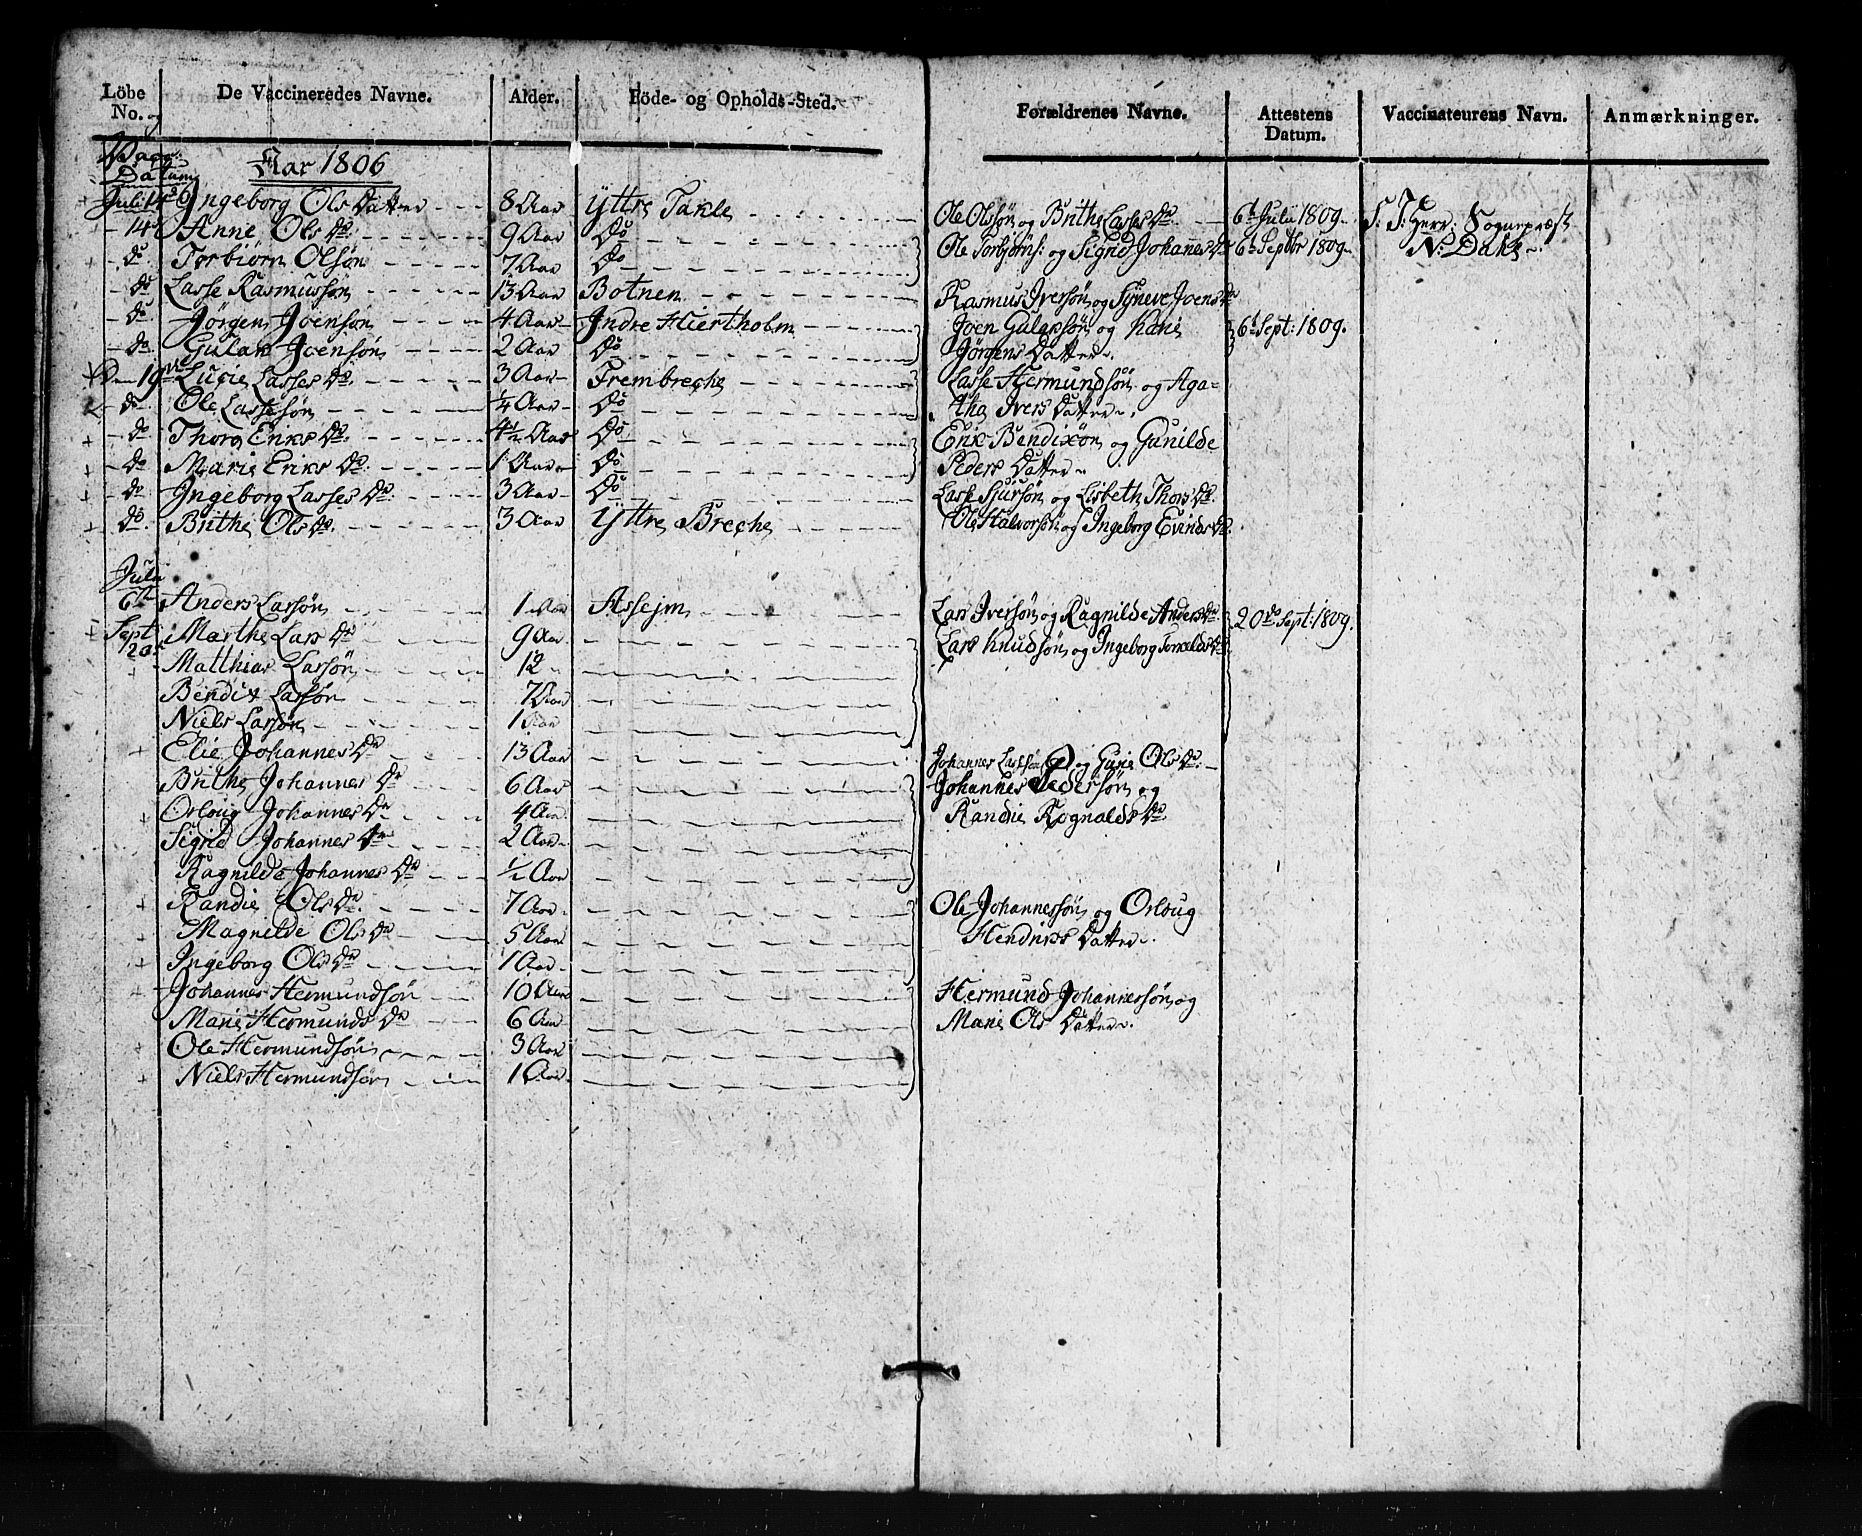 Löbe No. og De Vaccineredes Navne. Alder. Föde- og Opholds-Sted. Forældrenes Navne. Attestens Datum. Vaccinateurens Navn. Anmærkninger.
Datum Aar 1806
Juli 14de Ingeborg Ols Datter 8 Aar Yttre Takle Ole Olssön og Brithe Lasses Dr 6te Julii 1809
14 Anne Ols Dr. 9 Aar Do Ole Torbjörns: og Sigrid Johanes Dr 6te Septbr 1809
do Torbiörn Olsön 7 Aar Do
do Lasse Rasmussön 13 Aar Botnen Rasmus Iversön og Synneve Joens Dr
do Jörgen Joensön 4 Aar Indre Hiertholm Joen Gulaksön og Kari 6te Sept: 1809.
do Gulak Joensön 2 Aar Do Jörgens Datter.
Den 19de Lucie Lasses Dr. 3 Aar Frembreche Lasse Hermundsön og Aga-
do Ole Lassesön 1/4 Aar Do tha Ivers Datter.
do Thora Eriks Dr. 4 1/2 Aar Do Erik Bendixön og Gunilde
do Marie Eriks Dr. 1 Aar Do Peders Datter
do Ingeborg Lasses Dr. 3 Aar Do Lasse Sjursön og Lisbeth Thors Dr.
do. Brithe Ols Dr. 3 Aar Yttre Breche Ole Halvorsön og Ingeborg Evinds Dr.
Sognepræst
N: Dahl
Julii
6te Anders Larsön 1 Aar Assejm Lars Iversön og Ragnilde Anders Dr 20de Sept: 1809.
Sept Marthe Lars Dr 9 Aar Lars Knudsön og Ingeborg
Matthias Larsön 12
Bendix Larsön 7 Aar
Niels Larsön 1 Aar
Elie Johannes Dr 13 Aar Johannes og Guri Ols Dr.
Brithe Johannes Dr 6 Aar Johannes Pedersön og
Orloug Johannes Dr 4 Aar Randie Rognalds Dr.
Sigrid Johannes Dr 2 Aar
Ragnilde Johannes Dr 1/2 Aar
Randie Ols Dr. 7 Aar Ole Johannessön og Orloug
Magnilde Ols Dr 5 Aar Hendriks Datter.
Ingeborg Ols Dr 1 Aar
Johannes Hermundsön 10 Aar Hermund Johannessön og
Marie Hermunds Dr 6 Aar Marie Ols Datter.
Ole Hermundsön 3 Aar
Niels Hermundsön 1 Aar